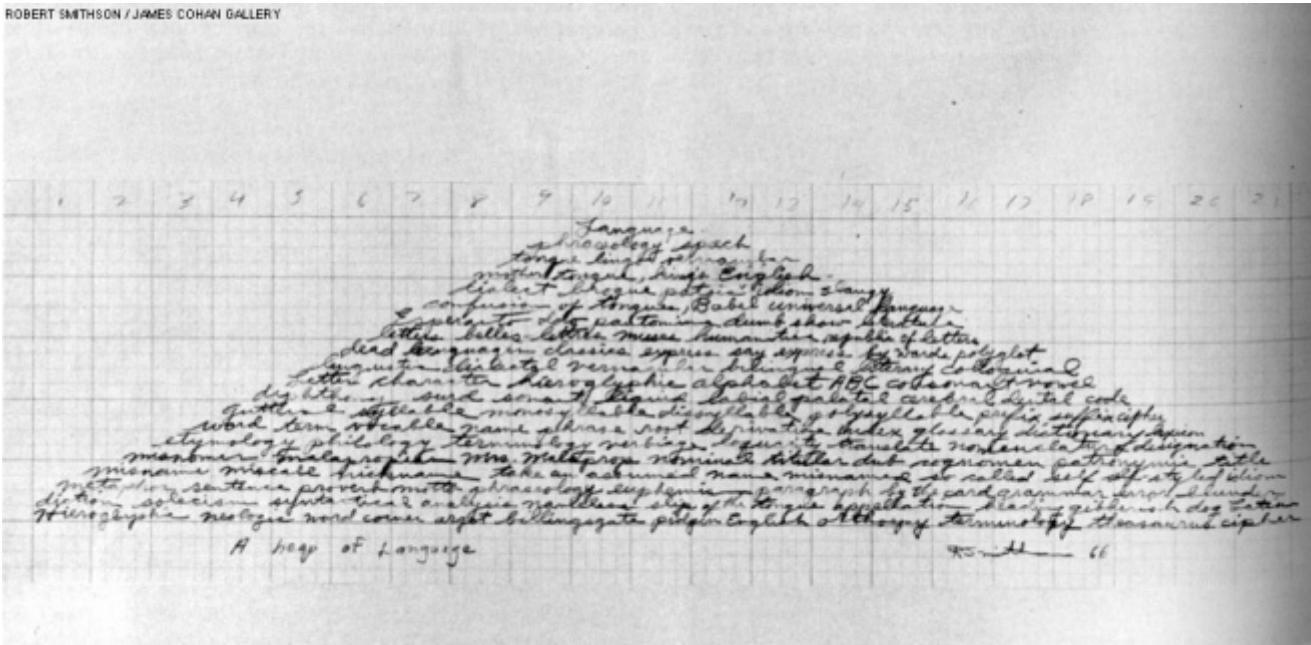 ROBERT SMITHSON / JAMES COHAN GALLERY
1 2 3 4 5 6 7 8 9 10 11 12 13 14 15 16 17 18 19 20 21
Language
phraseology speech
tongue lingo vernacular
mother tongue, King's English
dialect brogue patois idiom slang
confusion of tongues, Babel universal language
Esperanto Ido pantomime dumb show literature
letters belles-lettres muses humanities republic of letters
dead languages classics express say express by words polyglot
linguistic dialectal vernacular bilingual literary colloquial
letter character hieroglyphic alphabet ABC consonant vowel
diphthong surd sonant liquid labial palatal cerebral dental code
guttural syllable monosyllable dissyllable polysyllable prefix suffix cipher
word term vocable name phrase root derivative index glossary dictionary lexicon
etymology philology terminology verbiage loquacity translate nomenclature designation
misnomer malapropism Mrs. Malaprop nominal titular dub cognomen patronymic title
misname miscall nickname take an assumed name misnamed so called self-styled idiom
metaphor sentence proverb motto phraseology euphemism paragraph by the card grammar error blunder
diction solecism syntactical analysis slip of the tongue appellation gibberish dog Latin
Hieroglyphic neologic word coiner argot billingsgate pidgin English terminology thesaurus cipher
A heap of Language
RSmithson 66